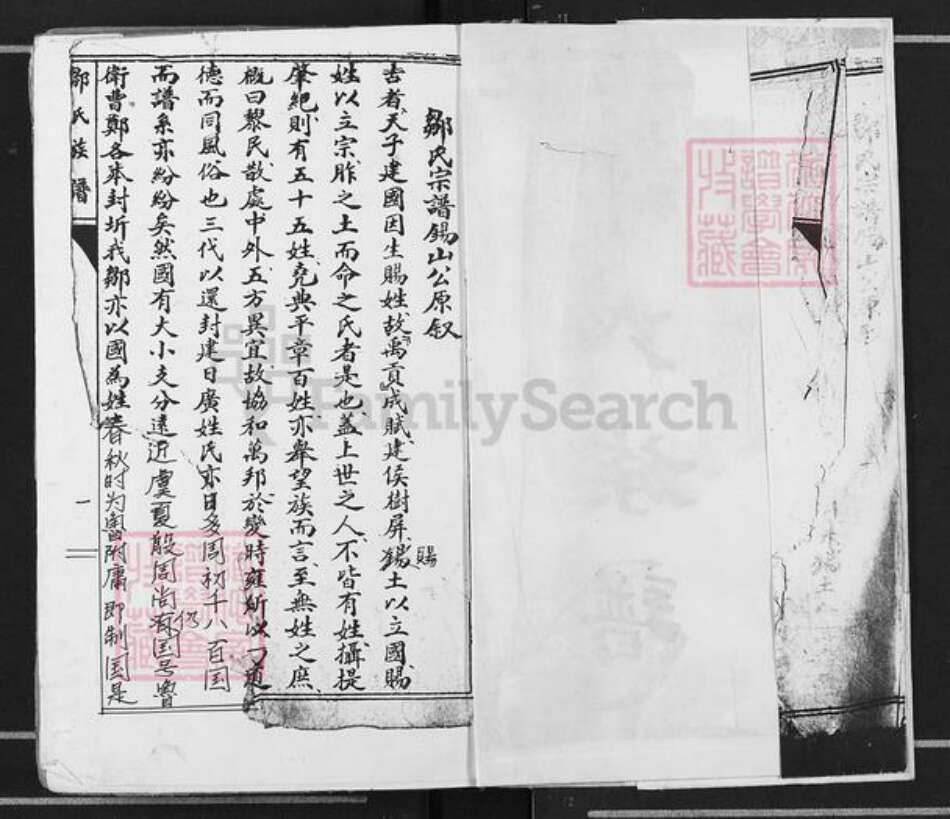 鄒氏宗譜錫山公原叙
古者天子建國因生賜姓故禹貢成賦建侯樹屏錫土以立國賜
賜
姓以立宗胙之土而命之氏者是也蓋上世之人不皆有姓攝提
肇紀則有五十五姓堯典平章百姓亦舉望族而言至無姓之庶
概曰黎民散處中外五方異宜故協和萬邦於變時雍所以一道
德而同風俗也三代以還封建日廣姓氏亦日多周初千八百国
而譜系亦紛紛矣然國有大小支分遠近虞夏殷周尚有国号魯
仍
衛曹鄭各奉封圻我鄒亦以國為姓春秋时为魯附庸即制国是
鄒氏族譜
一
FamilySearch